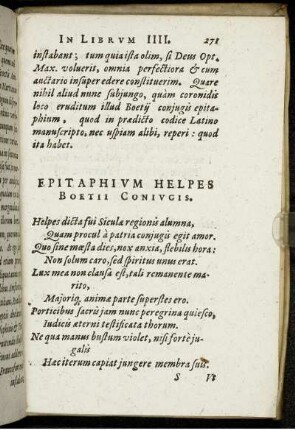 IN LIBRVM IIII. 271
instabant; tum quia ista olim, si Deus Opt.
Max. voluerit, omnia perfectiora & cum
auctario insuper edere constituerim. Quare
nihil aliud nunc subjungo, quàm coronidis
loco eruditum illud Boetij conjugis epita-
phium, quod in prædicto codice Latino
manuscripto, nec uspiam alibi, reperi: quod
ita habet.
EPITAPHIVM HELPES
BOETII CONIVGIS.
Helpes dicta fui Siculæ regionis alumna,
Quam procul à patria conjugis egit amor.
Quo sine mæsta dies, nox anxia, flebilis hora:
Non solum caro, sed spiritus unus erat.
Lux mea non clausa est, tali remanente ma-
rito,
Majoriq, animæ parte superstes ero.
Porticibus sacris jam nunc peregrina quiesco,
Iudicis æterni testificata thorum.
Ne qua manus bustum violet, nisi fortè ju-
galis
Hæc iterum capiat jungere membra suis.
S Vt